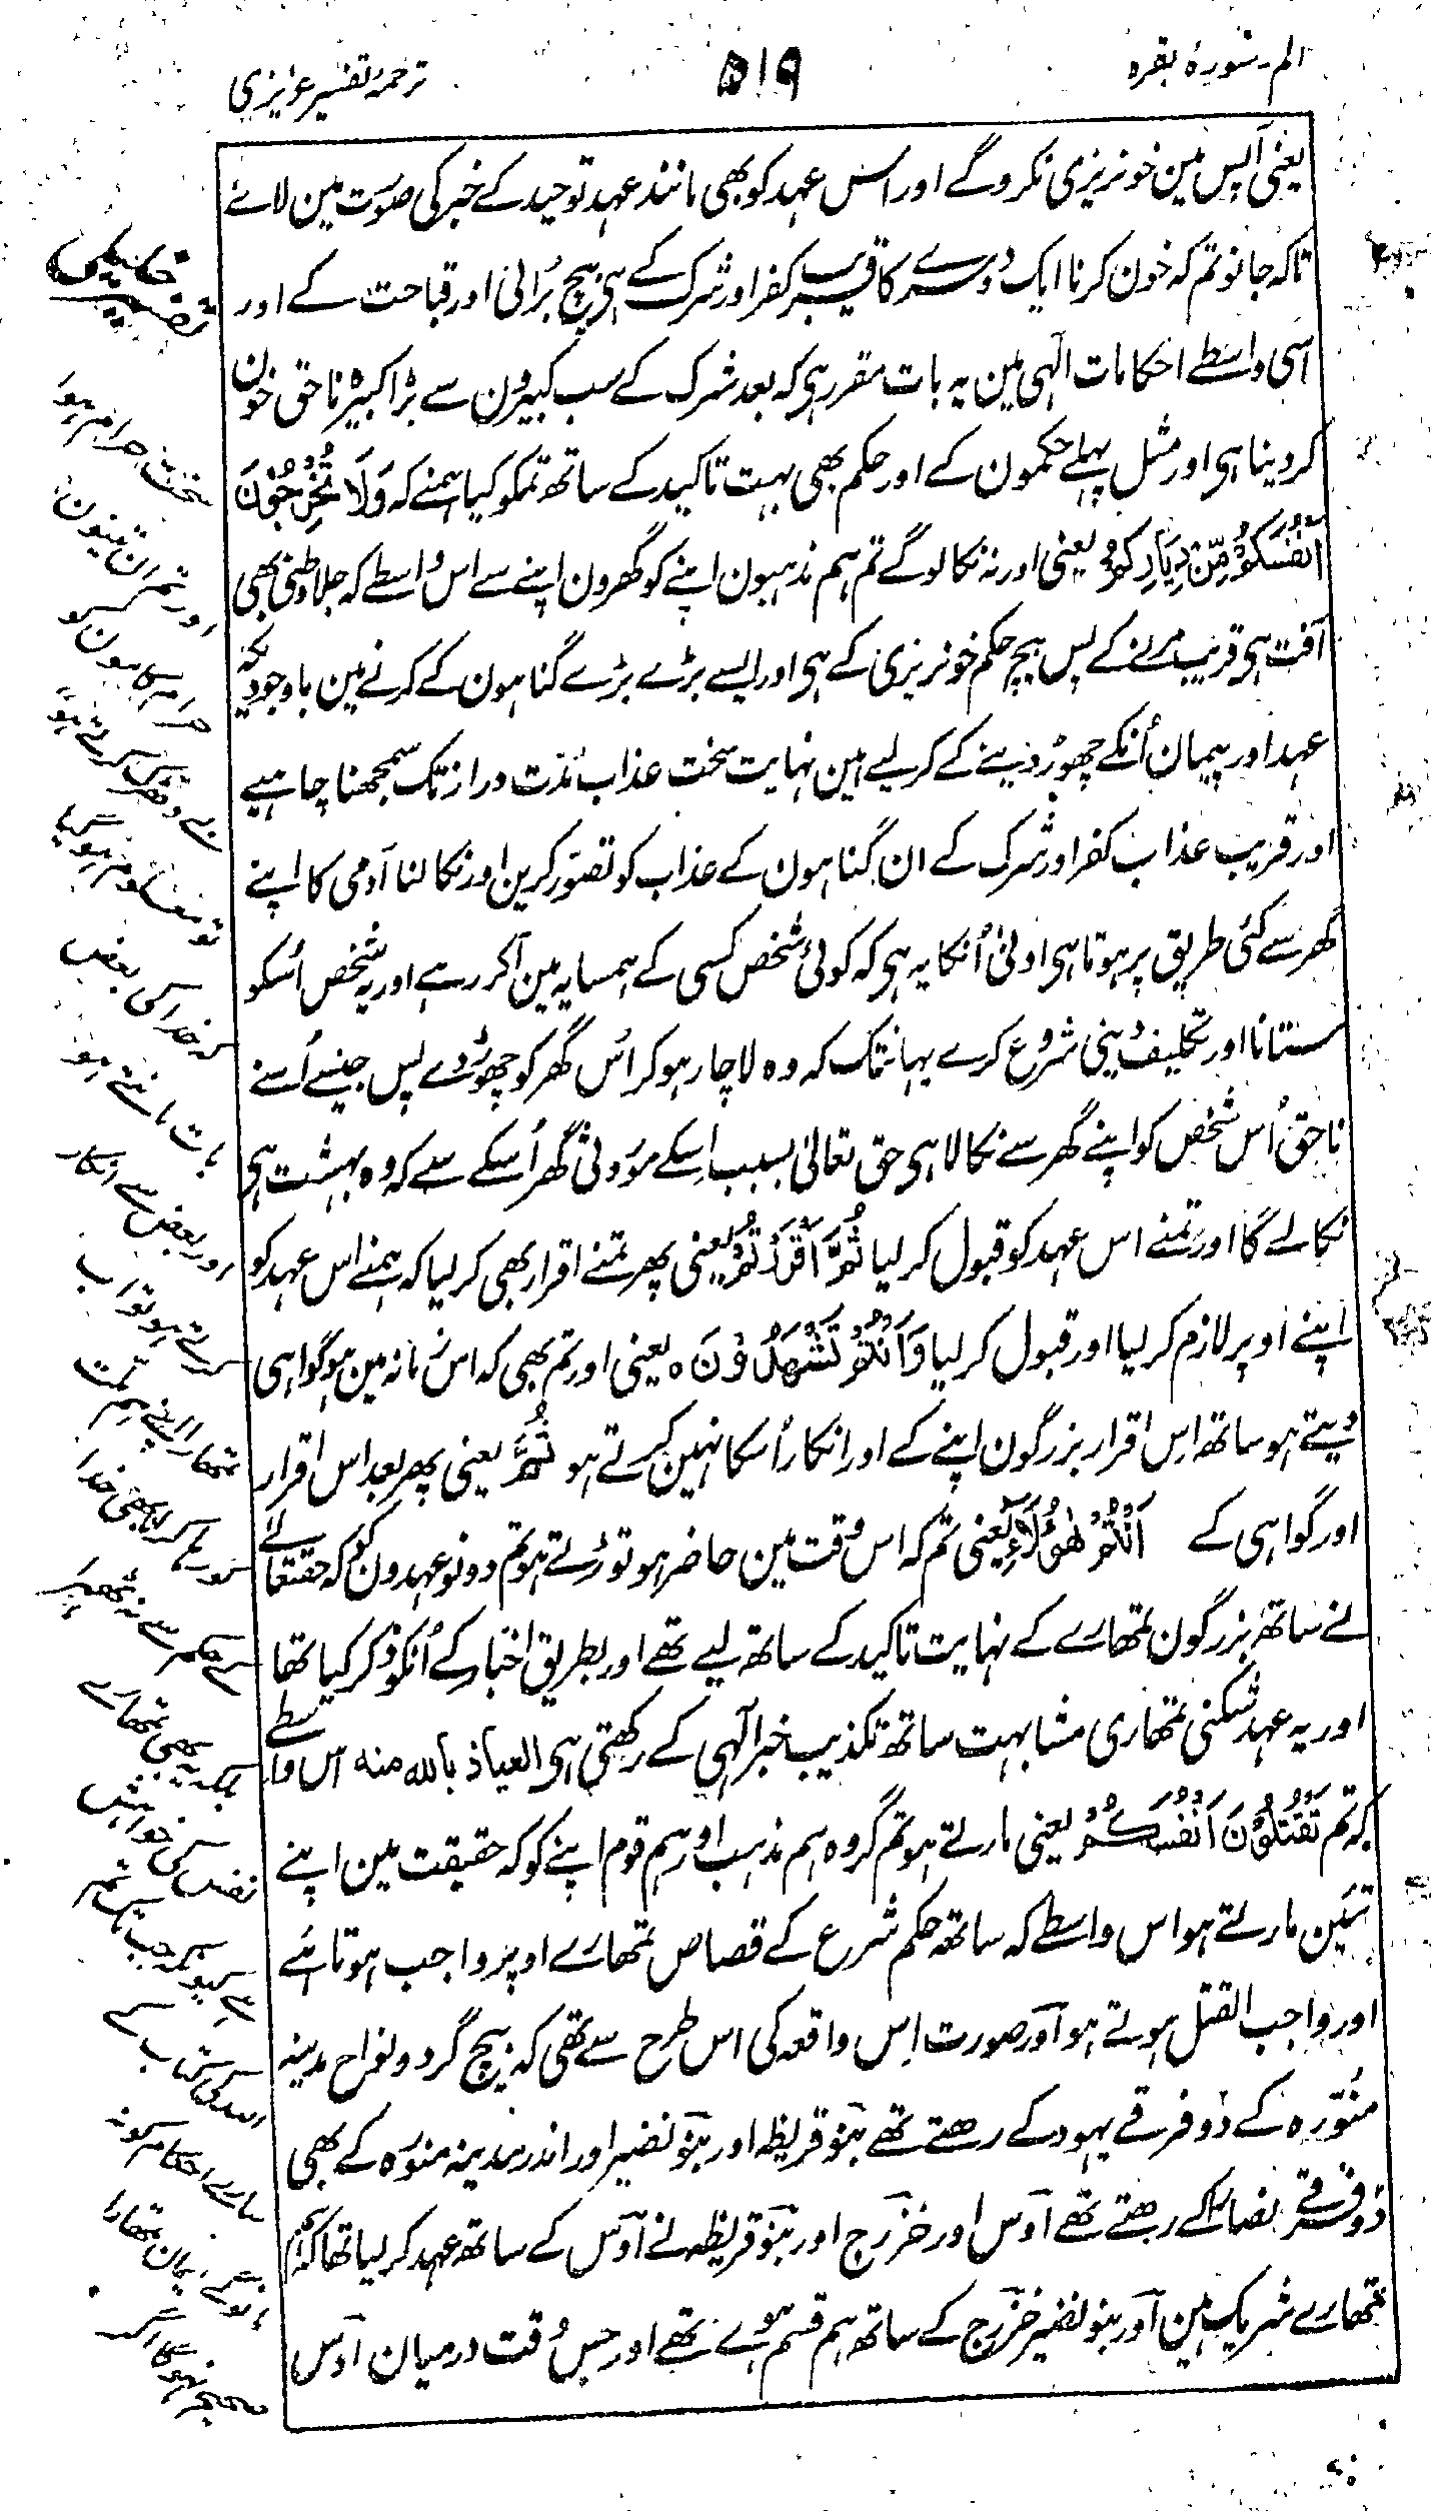 الم۔ سورۂ بقرہ
۵۱۹
ترجمۂ تفسیر عزیزی
یعنی آپس مین خونریزی نکروگے اور اس عہد کو بھی مانند عہد توحید کے خبر کی صورت مین لائے
تاکہ جانو تم کہ خون کرنا ایک دوسرے کا قریب کفر اور شرک کے ہی بیچ بُرائی اور قباحت کے اور
اسی واسطے احکامات الٓہی مین یہ بات مقرر ہی کہ بعد شرک کے سب کبیرون سے بڑا کبیرہ ناحق خون
کردینا ہی اور مثل پہلے حکمون کے اور حکم بھی بہت تاکید کے ساتھ تمکو کیا ہمنے کہ وَلَا تُخْرِجُوْنَ
اَنْفُسَكُمْ مِّنْ دِيَارِكُمْ یعنی اور نہ نکالو گے تم ہم مذہبون اپنے کو گھرون اپنے سے اس واسطے کہ جلاوطنی بھی
آفت ہی قریب مرنے کے پس بیچ حکم خونریزی کے ہی اور ایسے بڑے بڑے گناہون کے کرنے مین باوجودیکہ
عہد اور پیمان اُنکے چھوڑ دینے کے کرلیے ہین نہایت سخت عذاب مُدّت دراز تک سمجھنا چاہیے
اور قریب عذاب کفر اور شرک کے ان گناہون کے عذاب کو تصوّر کرین اور نکالنا آدمی کا اپنے
گھر سے کئی طریق پر ہوتا ہی اولیٰ اُنکا یہ ہی کہ کوئی شخص کسی کے ہمسایہ مین آکر رہے اور یہ شخص اُسکو
ستانا اور تکلیف دینی شروع کرے یہانتک کہ وہ لاچار ہوکر اُس گھر کو چھوڑدے پس جیسے اُسنے
ناحق اُس شخص کو اپنے گھر سے نکالا ہی حق تعالیٰ بسبب اِسکے موروثی گھر اُسکے سے کہ وہ بہشت ہی
نکالے گا اور تمنے اس عہد کو قبول کرلیا ثُمَّ اَقْرَرْتُمْ یعنی پھر تمنے اقرار بھی کرلیا کہ ہمنے اس عہد کو
اپنے اوپر لازم کرلیا اور قبول کرلیا وَاَنْتُمْ تَشْهَدُوْنَ ہ یعنی اور تم بھی کہ اس زمانہ مین ہو گواہی
دیتے ہو ساتھ اِس اقرار بزرگون اپنے کے اور انکار اُسکا نہین کرتے ہو ثُمَّ یعنی پھر بعد اس اقرار
اور گواہی کے اَنْتُمْ هٰؤُلَآءِ یعنی تم کہ اس وقت مین حاضر ہو توڑتے ہو تم دونو عہدون کو کہ حقتعالےٰ
نے ساتھ بزرگون تمھارے کے نہایت تاکید کے ساتھ لیے تھے اور بطریق اخبار کے اُنکو ذکر کیا تھا
اور یہ عہد شکنی تمھاری مشابہت ساتھ تکذیب خبر الٓہی کے رکھتی ہی العیاذ باللہ منہ اس واسطے
کہ تم تَقْتُلُوْنَ اَنْفُسَكُمْ یعنی مارتے ہو تم گروہ ہم مذہب اور ہم قوم اپنے کو کہ حقیقت مین اپنے
تئین مارتے ہو اس واسطے کہ ساتھ حکم شرع کے قصاص تمھارے اوپر واجب ہوتا ہے
اور واجب القتل ہوتے ہو اور صورت اِس واقعہ کی اس طرح سے تھی کہ بیچ گرد و نواح مدینہ
منوّرہ کے دو فرقے یہود کے رہتے تھے بنو قریظہ اور بنو نضیر اور اندر مدینہ منورہ کے بھی
دو فرقے نصارٰی کے رہتے تھے اوس اور خزرج اور بنو قریظہ نے اوس کے ساتھ عہد کرلیا تھا کہ ہم
تمھارے شریک ہین اور بنو نضیر خزرج کے ساتھ ہم قسم ہوے تھے اور جس وقت درمیان اوس
سخت حرام ہو
اور تم ان تینون
حرامی کامون کو
بے دھڑک کرتے ہو
تو معلوم ہوگیا
کہ خدا کی بعض
بات مانتے ہو
اور بعض سے انکار
کرتے ہو تو اب
تمھارا اپنے ہمّت
بلکہ یہ بھی تمھارے
نفس کی خواہش
ہے کیونکہ جب تک تم
اللہ کی کتاب کے
سارے احکام کو نہ
مانوگے ایمان تمھارا
صحیح نہوگا اگر